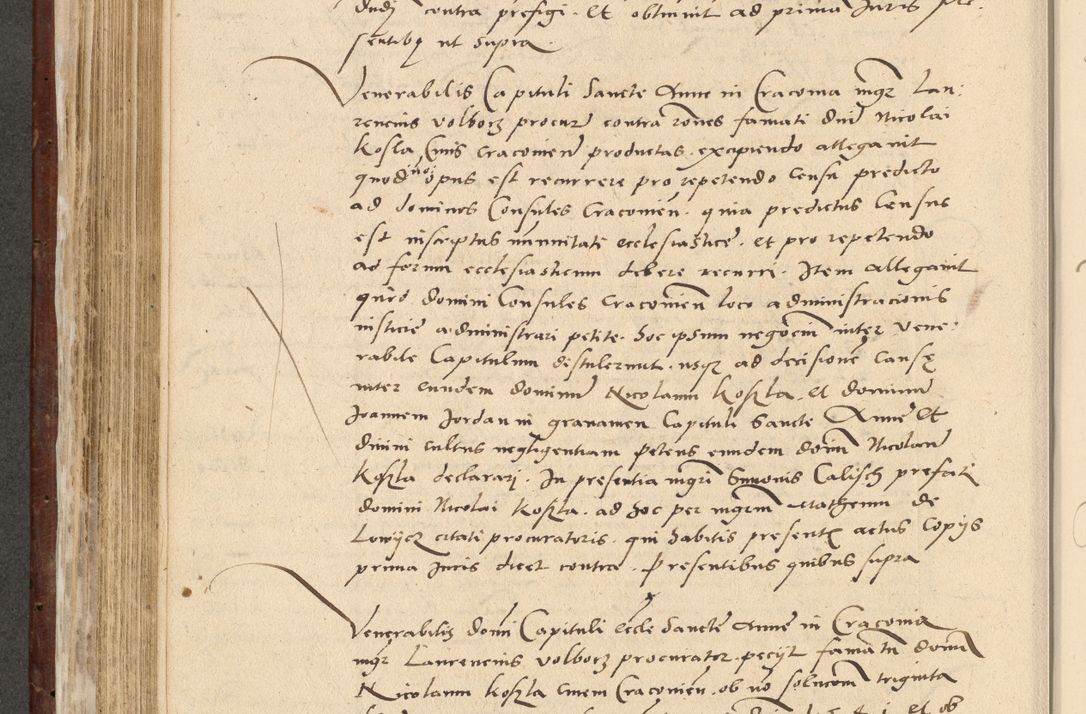 contra prefigi. Et obtinuit ad prima Juris
sentibus ut supra.
Venerabilis Capituli Sancte Anne in Cracovia mgr Lau-
rencius volborz procur contra rones famati dni Nicolai
Kosla Civis Cracovien productas. excipiendo allegavit
quod no opus est recurrere pro repetendo censu predicto
ad dominos Consules Cracovien. quia predictus Census
est inscriptus immunitati ecclesiastice. et pro repetendo
ad forum ecclesiasticum debere recurri. Item allegavit
domini Consules Cracovien loco administracionis
iusticie administrari petite. hoc ipsum negocium inter vene-
rabile Capitulum distulerunt. usqz ad decisione Causę
inter eundem dominum Nicolaum Koszla. et dominum
Joannem Jordan in gravamen Capituli Sancte Anne Et
divini cultus negligentiam petens eundem domin Nicolaum
Koszla declarari. In presentia mgri Simonis Calisch prefati
domini Nicolai Koszla. ad hoc per mgrum Matheum de
Lowycz citati procuratoris. qui habitis presentis actus Copiis
prima Juris dicet contra. Presentibus quibus supra
Venerabilis domi Capituli eccle Sancte Anne in Cracovia
mgr Laurencius volborz procurator. peciit famatu domin
Nicolaum Koszla civem Cracovien. ob no solucom triginta
et ob